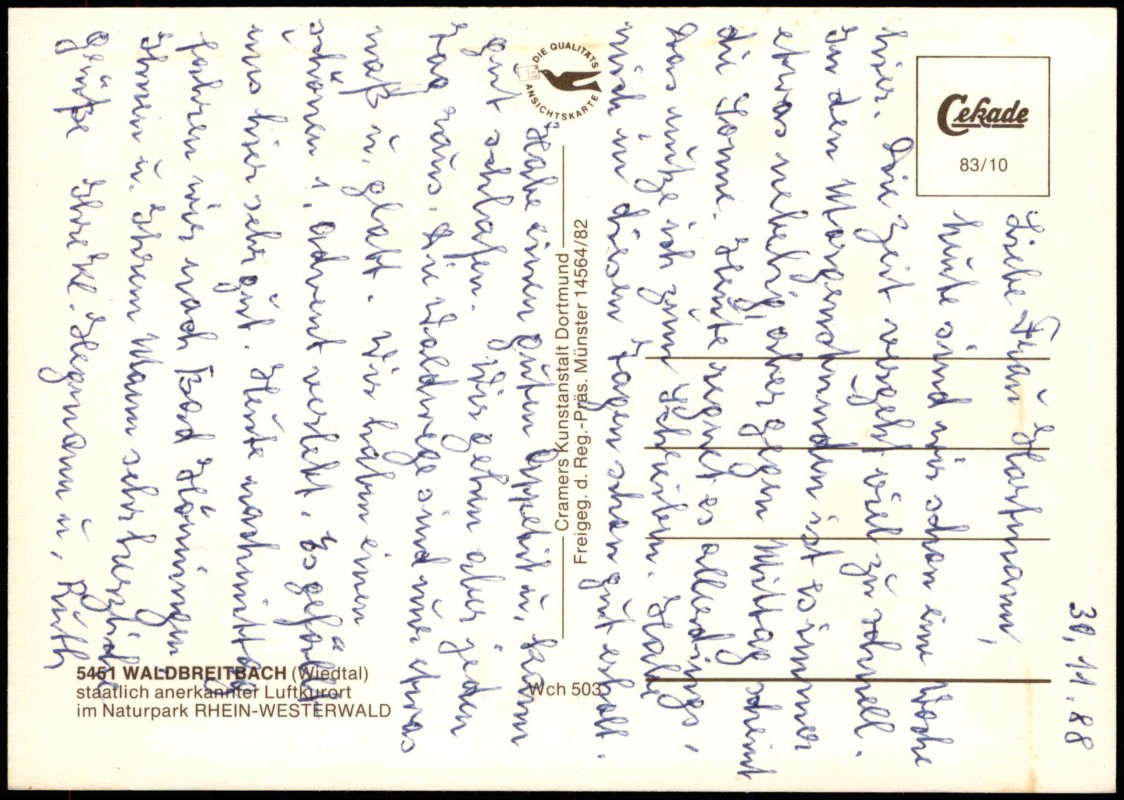 30.11.88
Liebe Frau Hartmann,
heute sind wir schon eine Woche
hier. Die Zeit vergeht viel zu schnell.
In den Morgenstunden ist es immer
etwas nebelig, aber gegen Mittag scheint
die Sonne. Heute regnet es allerdings,
das nutze ich zum Schreiben. Habe
mich in diesen Tagen schon gut erholt.
Habe einen guten Appetit u. kann
gut schlafen. Wir gehen aber jeden
Tag raus, die Waldwege sind nur etwas
naß u. glatt. Wir haben einen
schönen 1. Advent verlebt. Es gefällt
uns hier sehr gut. Heute nachmittag
fahren wir nach Bad Hönningen
Ihnen u. Ihrem Mann sehr herzliche
Grüße Ihre Kl. Hegmann u. Ruth
DIE QUALITÄTS
ANSICHTSKARTE
Cekade
83/10
Cramers Kunstanstalt Dortmund
Freigeg. d. Reg.-Präs. Münster 14564/82
5451 WALDBREITBACH (Wiedtal)
staatlich anerkannter Luftkurort
im Naturpark RHEIN-WESTERWALD
Wch 503